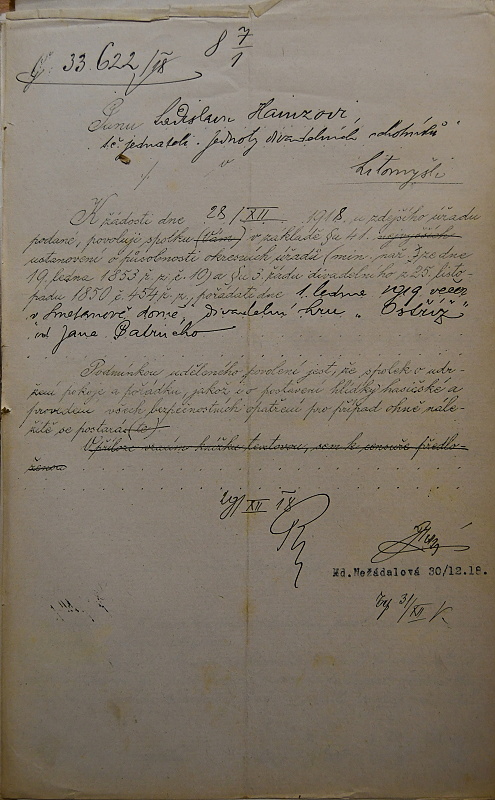 8 7/1
Č. 33.622/18
Panu Ladislavu Hainzovi,
t.č. jednateli "Jednoty divadelních ochotníků"
v
Litomyšli
K žádosti dne 28/XII. 1918, u zdejšího úřadu
podané, povoluji spolku (Vám) v základě §u 41.
ustanovení o působnosti okresních úřadů (min. nař. ze dne
19. ledna 1853 ř. z. č. 10) a §u 3. řádu divadelního z 25. listo-
padu 1850 č. 454 ř. z., pořádati dne 1. ledna 1919 večer
v Smetanově domě, divadelní hru "Ostříž"
od Jana Patrného
Podmínkou uděleného povolení jest, že spolek o udr-
žení pokoje a pořádku, jakož i o postavení hlídky hasičské a
provedení všech bezpečnostních opatření pro případ ohně nále-
žitě se postará (te).
V příloze vracím knížku textovou, sem k censuře předlo-
ženou
29/XII 18
Kd. Nežádalová 30/12.18.
31/XII